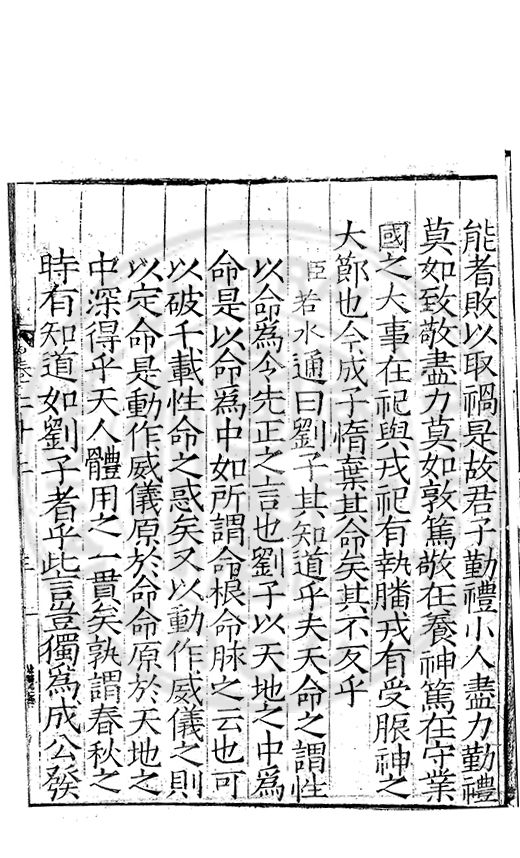 能者敗以取禍是故君子勤禮小人盡力勤禮
莫如致敬盡力莫如敦篤敬在養神篤在守業
國之大事在祀與戎祀有執膰戎有受脤神之
大節也今成子惰棄其命矣其不反乎
臣若水通曰劉子其知道乎夫天命之謂性
以命為令先正之言也劉子以天地之中為
命是以命為中如所謂命根命脉之云也可
以破千載性命之惑矣又以動作威儀之則
以定命是動作威儀原於命命原於天地之
中深得乎天人體用之一貫矣孰謂春秋之
時有知道如劉子者乎此言豈獨為成公發